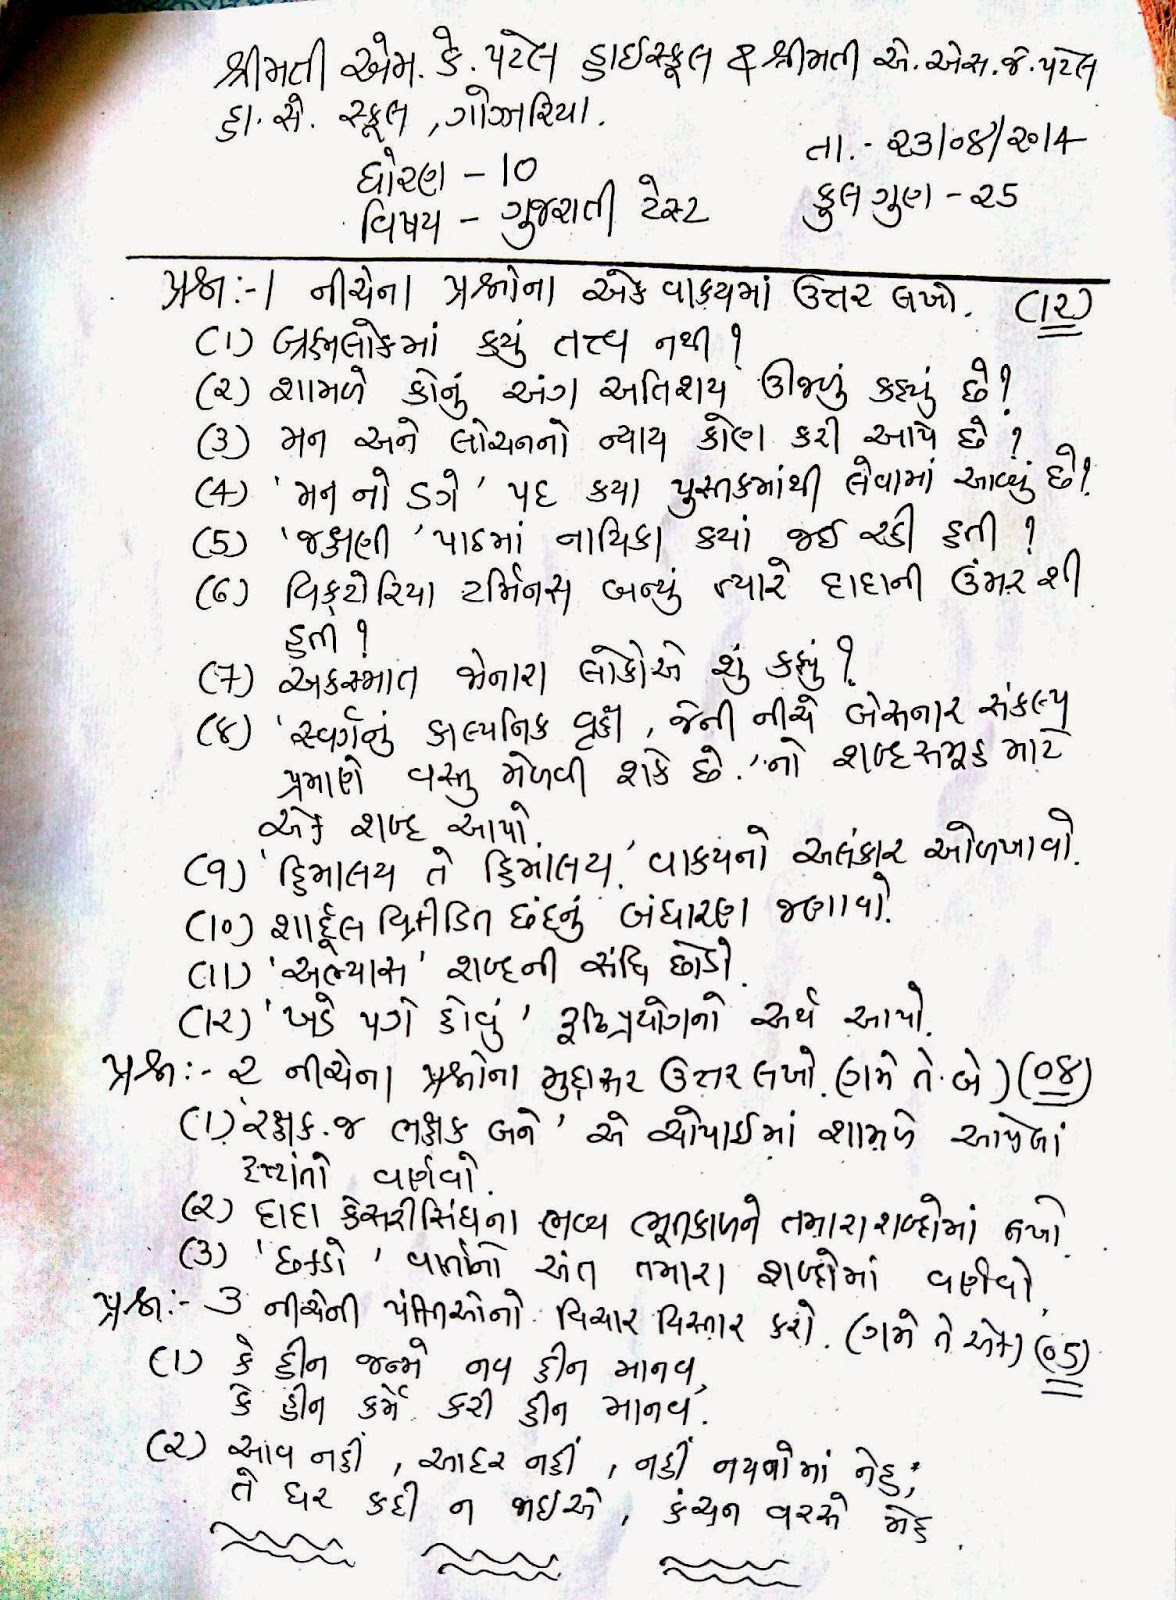 શ્રીમતી એમ. કે. પટેલ હાઈસ્કૂલ & શ્રીમતી એ. એસ. જે. પટેલ
હા. સે. સ્કૂલ, ગોઝારિયા.
તા. - ૨૩/૦૪/૨૦૧૪
ધોરણ - 10
કુલ ગુણ - ૨૫
વિષય - ગુજરાતી ટેસ્ટ
પ્રશ્ન :- 1 નીચેના પ્રશ્નોના એક વાક્યમાં ઉત્તર લખો. (૧૨)
(૧) બ્રહ્મલોકમાં કયું તત્ત્વ નથી ?
(૨) શામળે કોનું અંગ અતિશય ઊજળું કહ્યું છે ?
(૩) મન અને લોચનનો ન્યાય કોણ કરી આપે છે ?
(૪) 'મન નો ડગે' પદ કયા પુસ્તકમાંથી લેવામાં આવ્યું છે ?
(૫) 'જક્ષણી' પાઠમાં નાયિકા ક્યાં જઈ રહી હતી ?
(૬) વિક્ટોરિયા ટર્મિનસ બન્યું ત્યારે દાદાની ઉંમર શી
હતી ?
(૭) અકસ્માત જોનારા લોકોએ શું કહ્યું ?
(૮) 'સ્વર્ગનું કાલ્પનિક વૃક્ષ, જેની નીચે બેસનાર સંકલ્પ
પ્રમાણે વસ્તુ મેળવી શકે છે.' નો શબ્દસમૂહ માટે
એક શબ્દ આપો.
(૯) 'હિમાલય તે હિમાલય.' વાક્યનો અલંકાર ઓળખાવો.
(૧૦) શાર્દૂલ વિક્રીડિત છંદનું બંધારણ જણાવો.
(૧૧) 'અભ્યાસ' શબ્દની સંધિ છોડો.
(૧૨) 'ખડે પગે હોવું' રૂઢિપ્રયોગનો અર્થ આપો.
પ્રશ્ન :- ૨ નીચેના પ્રશ્નોના મુદ્દાસર ઉત્તર લખો. (ગમે તે બે) (૦૪)
(૧) 'રક્ષક જ ભક્ષક બને' એ ચોપાઈમાં શામળે આપેલાં
દૃષ્ટાંતો વર્ણવો.
(૨) દાદા કેસરીસિંઘના ભવ્ય ભૂતકાળને તમારા શબ્દોમાં લખો.
(૩) 'છકડો' વાર્તાનો અંત તમારા શબ્દોમાં વર્ણવો.
પ્રશ્ન :- ૩ નીચેની પંક્તિઓનો વિચાર વિસ્તાર કરો. (ગમે તે એક) (૦૫)
(૧) કે હીન જન્મે નવ હીન માનવ,
કે હીન કર્મે કરી હીન માનવ.
(૨) આવ નહીં, આદર નહીં, નહીં નયનોમાં નેહ;
તે ઘર કદી ન જાઈએ, કંચન વરસે મેહ.